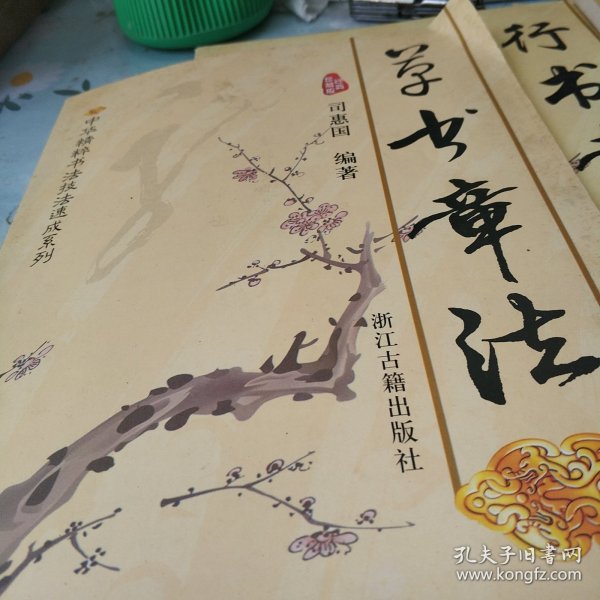 草书章法
行书
司惠国 编著
中华精粹书法技法速成系列
浙江古籍出版社
孔夫子旧书网
www.kongfz.com